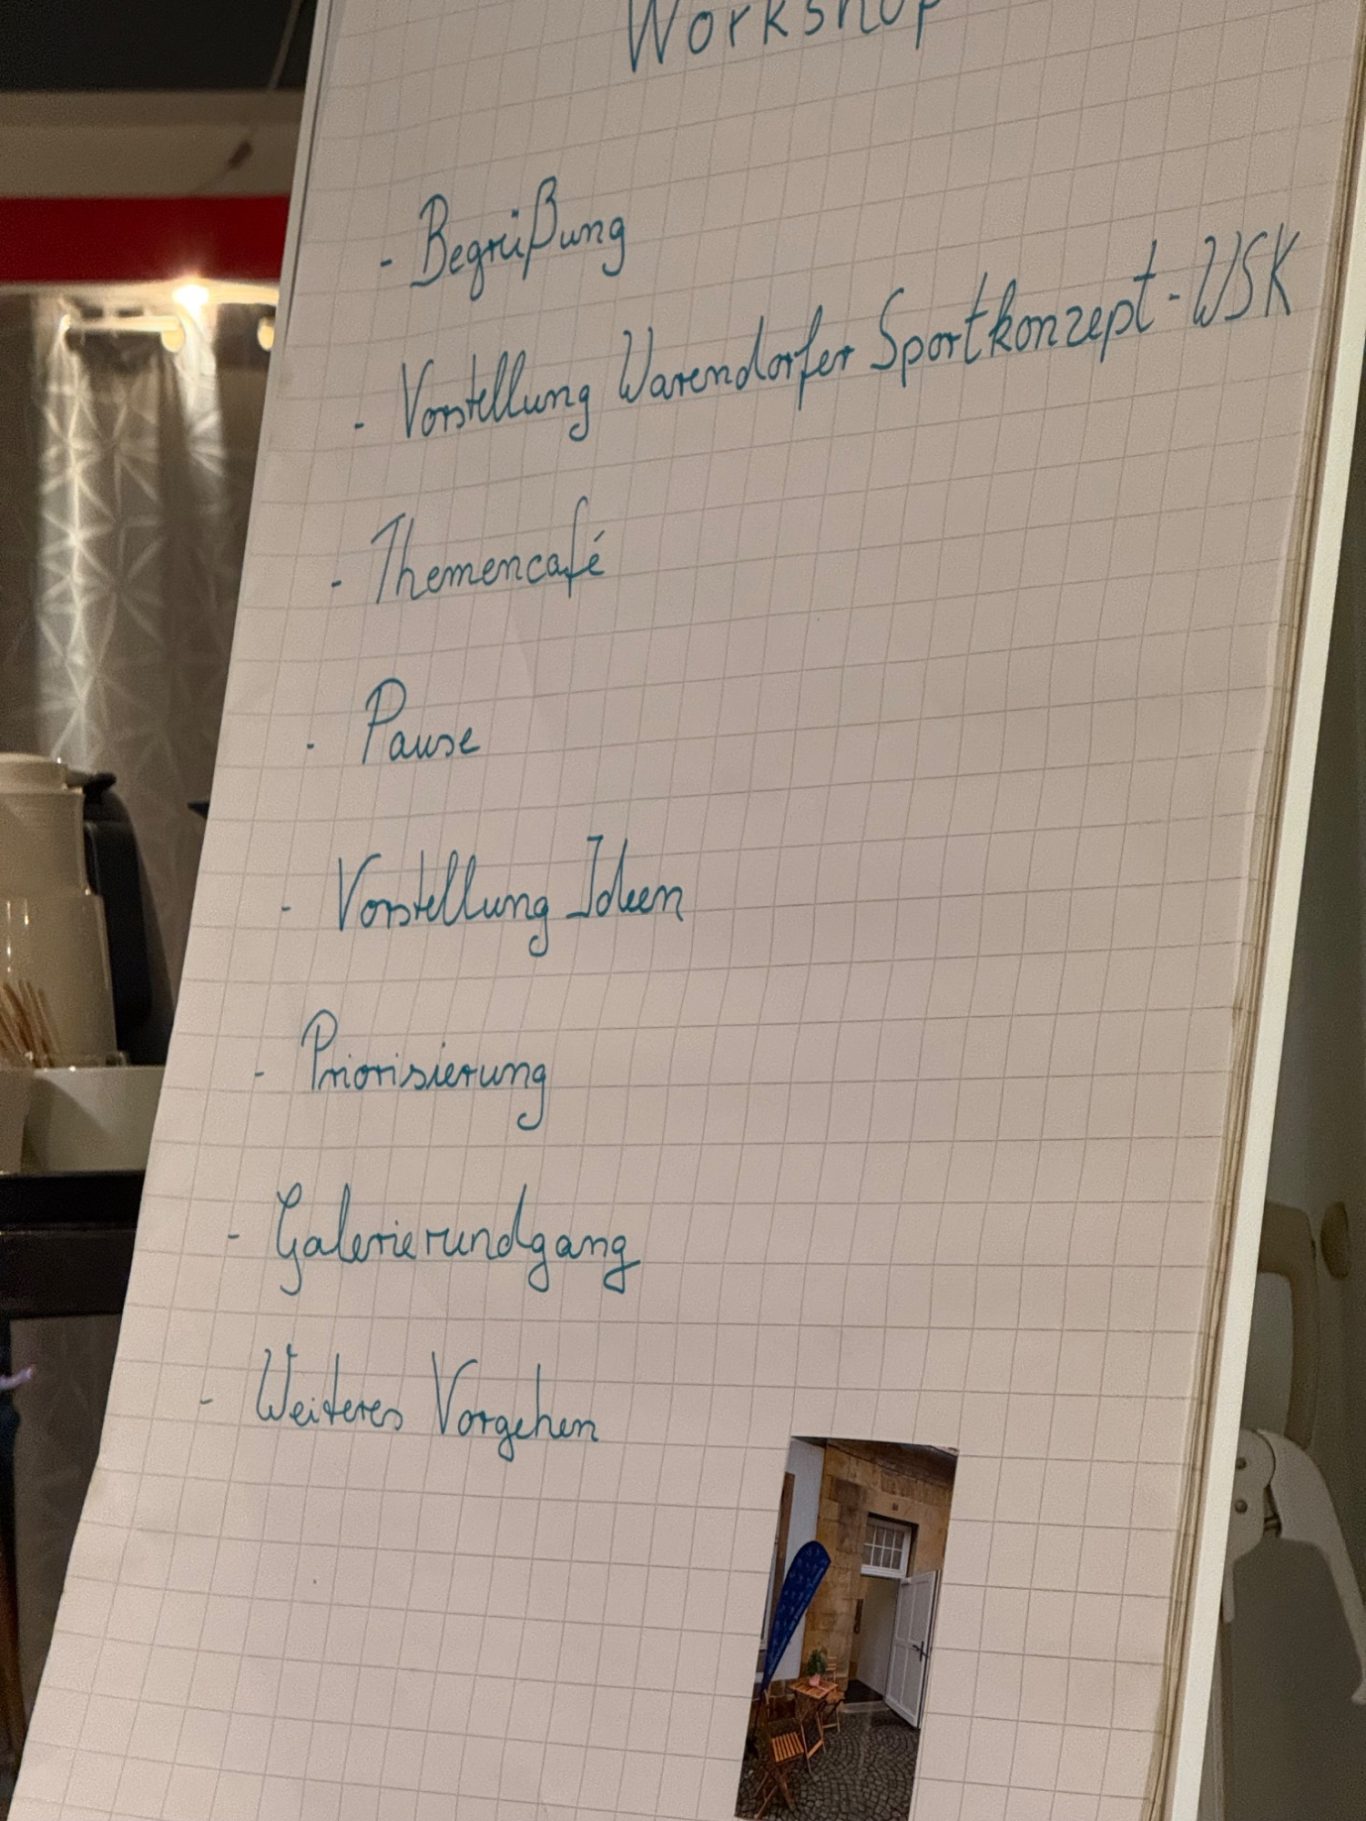 Workshop
- Begrüßung
- Vorstellung Warendorfer Sportkonzept - WSK
- Themencafé
- Pause
- Vorstellung Ideen
- Priorisierung
- Galerierundgang
- Weiteres Vorgehen